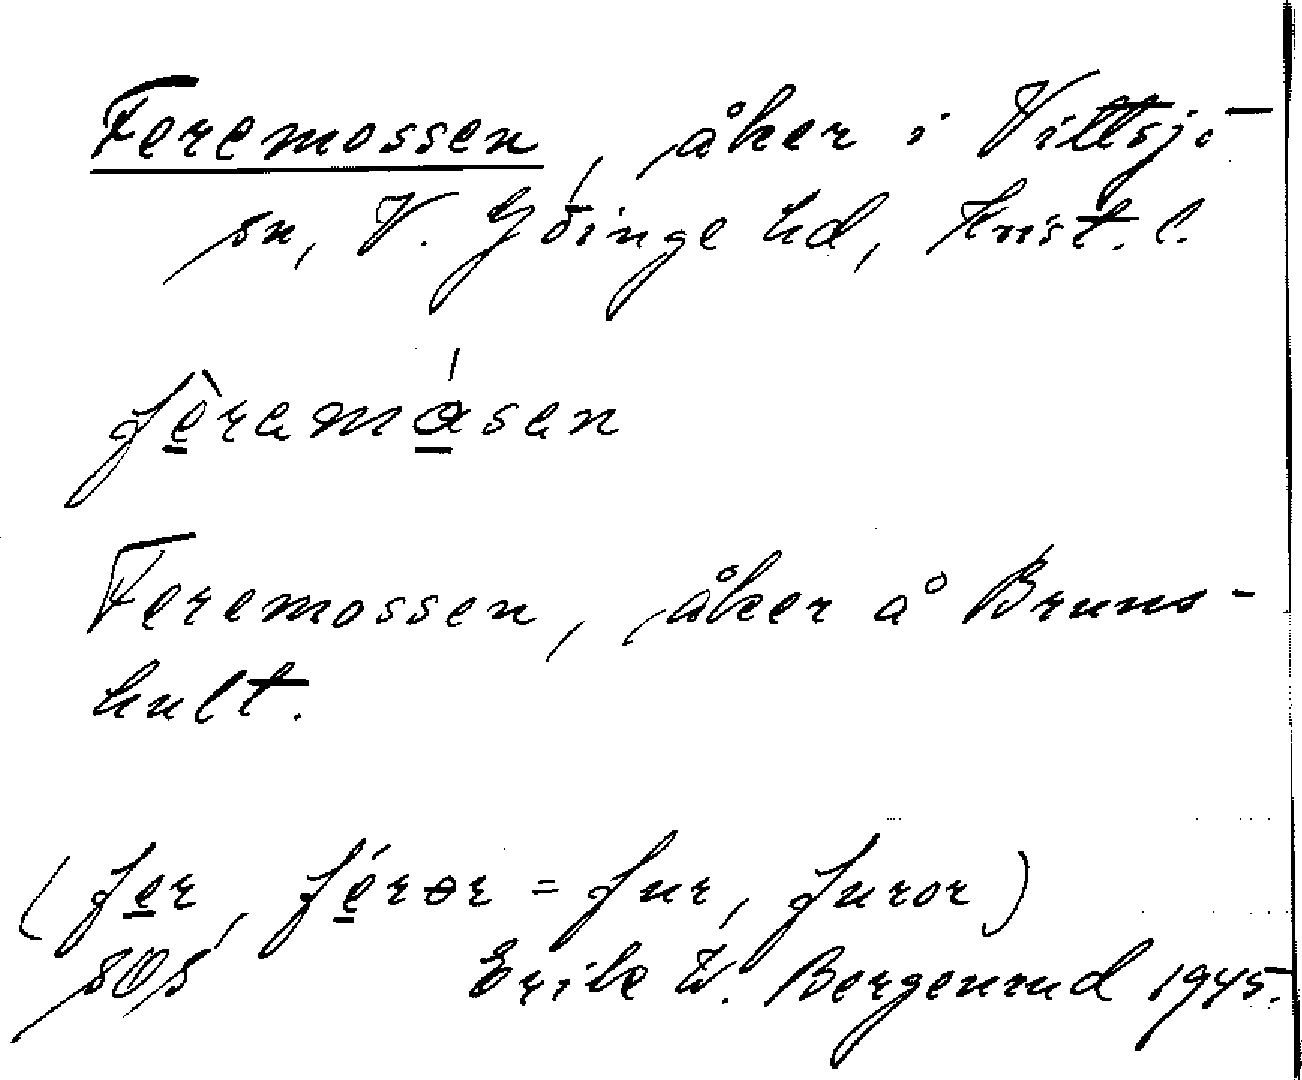 Feremossen, åker i Vittsjö
sn, V. Göinge hd, Krist. l.
fê̱remá̱sen
Feremossen, åker å Bruns-
hult.
(fe̱r, fé̱rɵr = fur, furor)
Erik W. Bergenrud 1945.